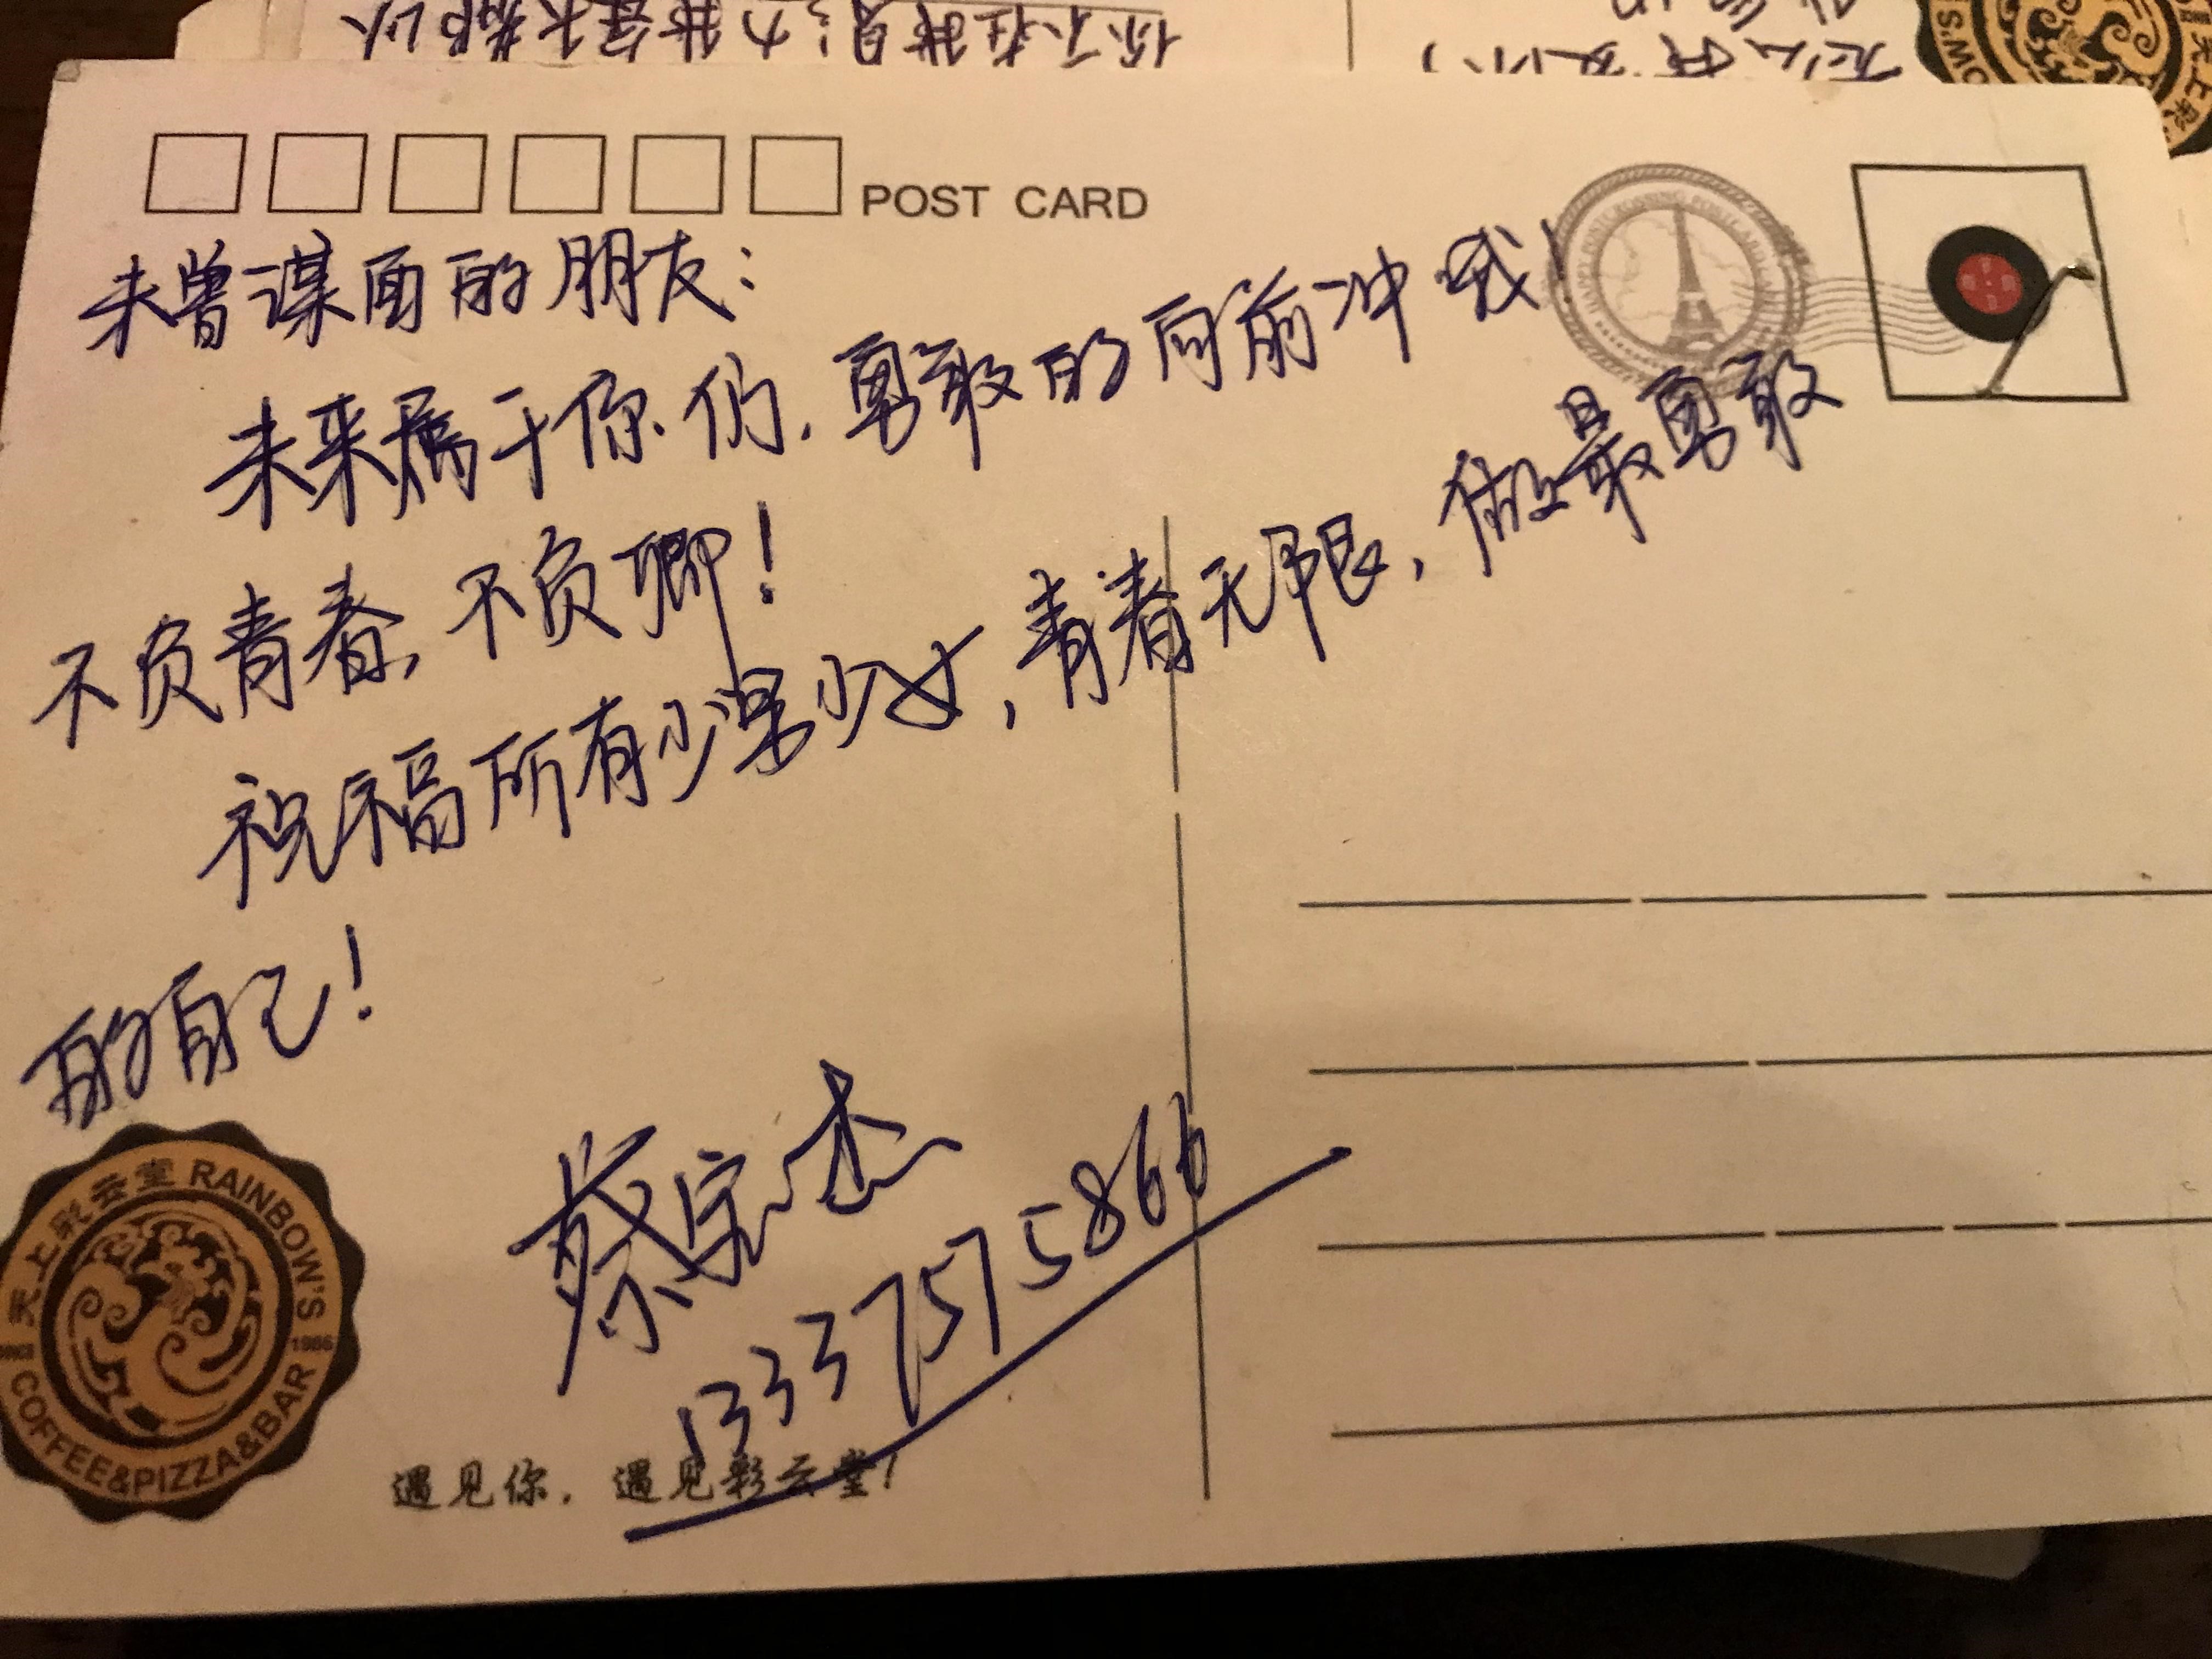 你不在我身边 我在长 都以
POST CARD
未曾谋面的朋友：
未来属于你们，勇敢的向前冲哦！
不负青春，不负卿！
祝福所有少男少女，青春无限，做最勇敢
的自己！
蔡宗杰
13337575866
天上彩云堂 RAINBOW'S
1986
COFFEE&PIZZA&BAR
遇见你，遇见彩云堂！